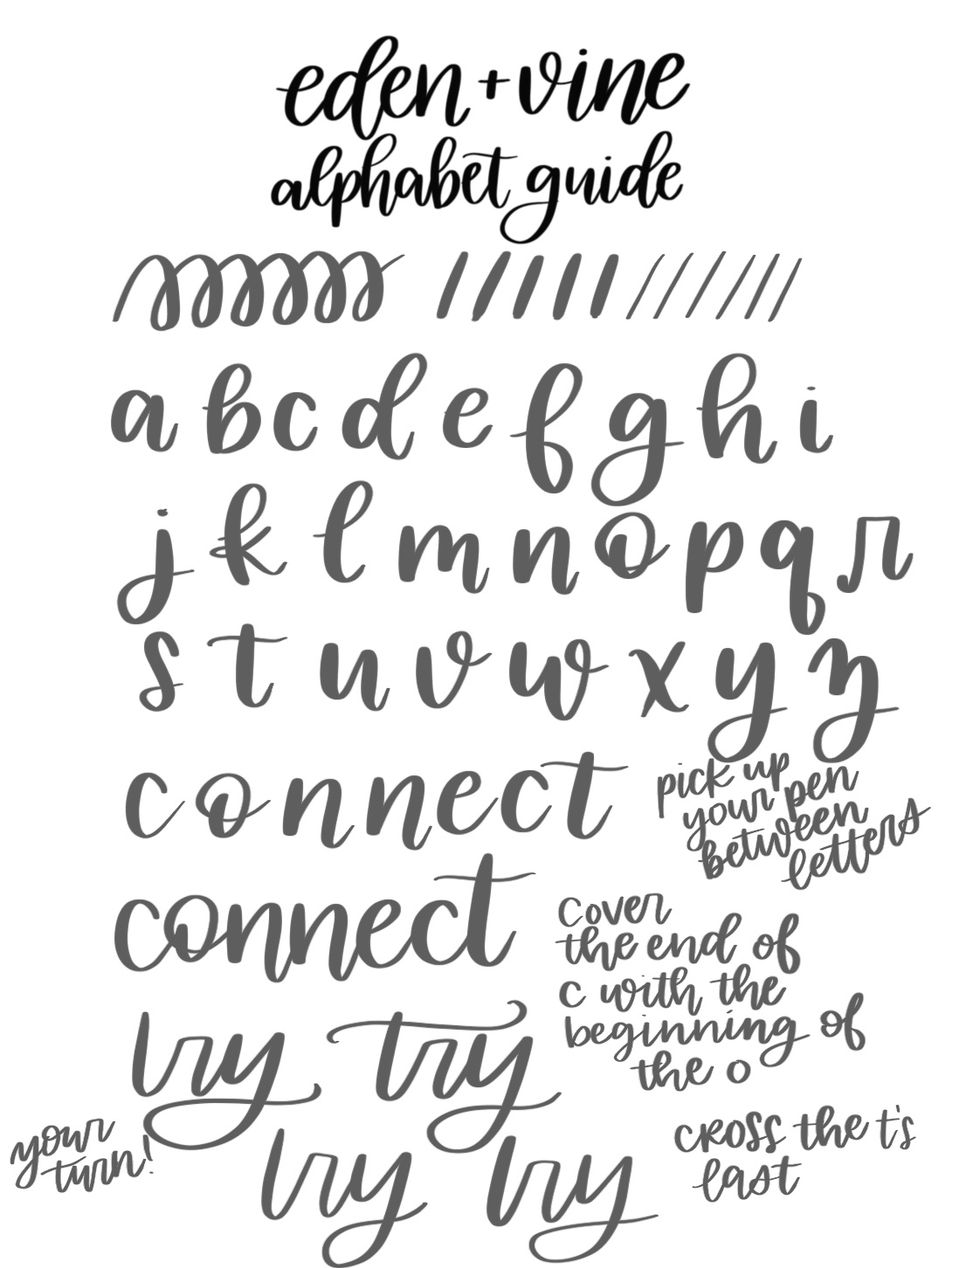 eden + vine
alphabet guide
a b c d e f g h i
j k l m n o p q r
s t u v w x y z
connect
pick up
your pen
between
letters
connect
cover
the end of
c with the
beginning of
the o
try try
your
turn!
try try
cross the t's
last